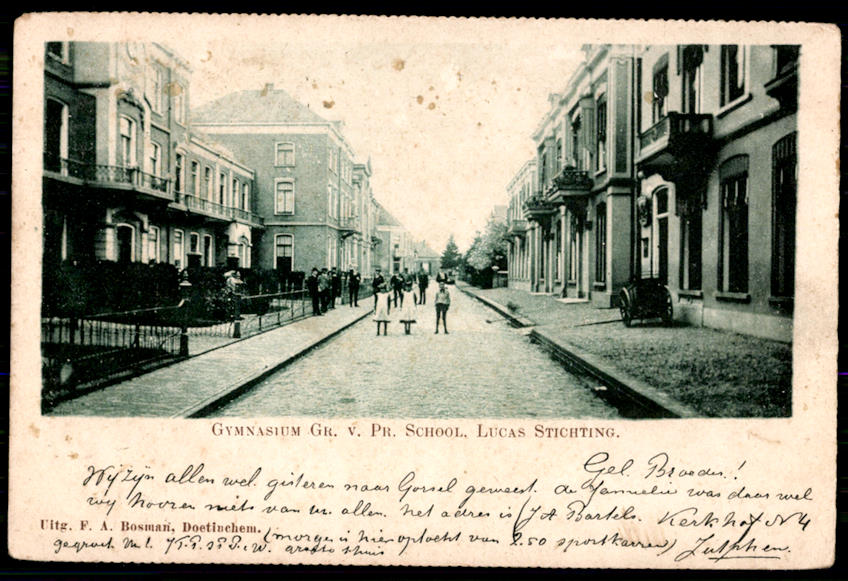 GYMNASIUM GR. V. PR. SCHOOL, LUCAS STICHTING.
Gel. Broeder!
Wij zijn allen wel. gisteren naar Gorsel geweest. de familie was daar wel
wij hooren niets van allen. het adres is (J A Bartels. Kerkhof No 4
Uitg. F. A. Bosman, Doetinchem.
(morgen is hier optocht van 250 sportkarren) Zutphen.
gegroet